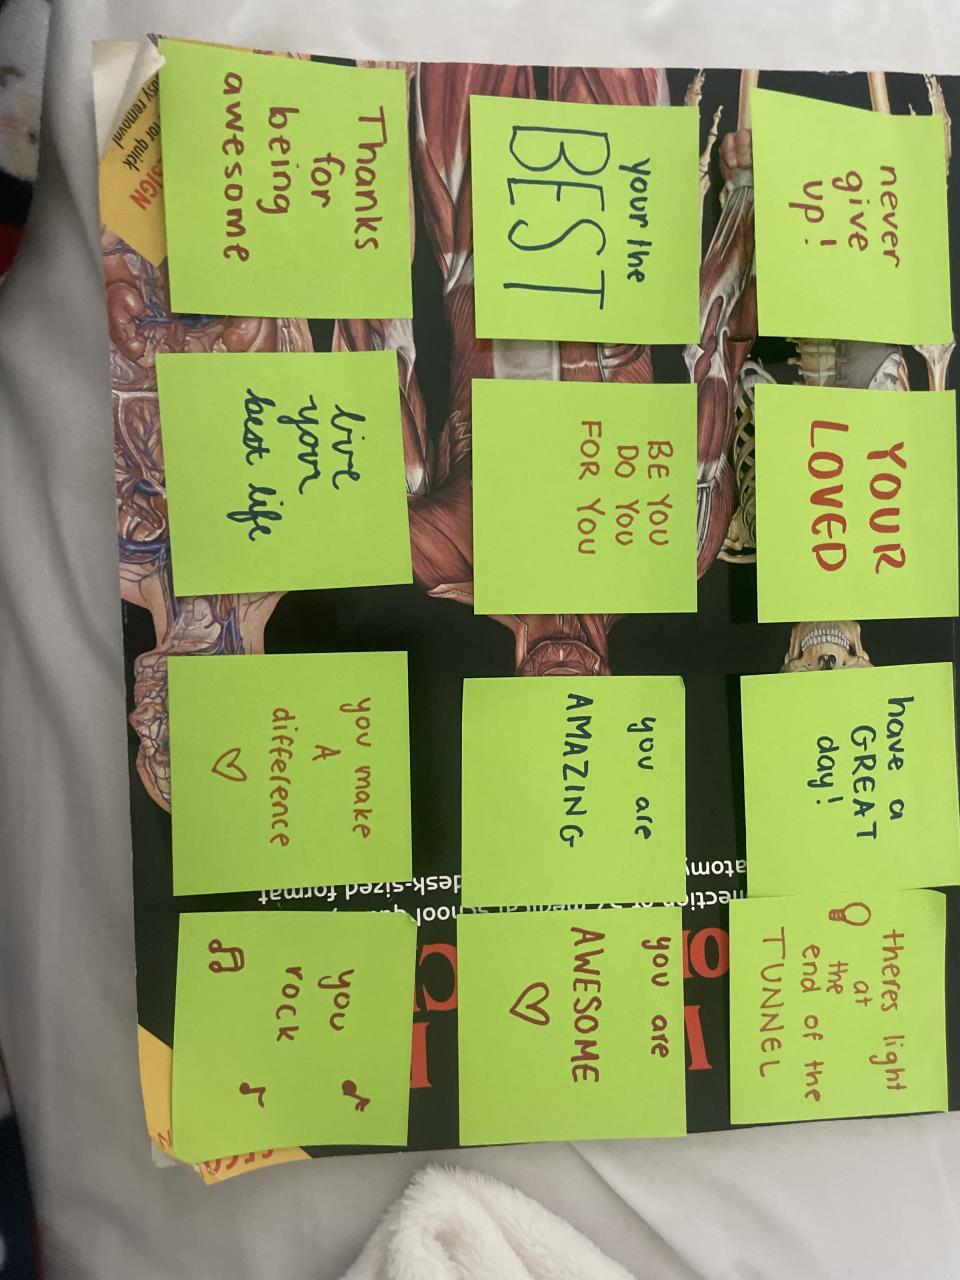 never
give
up!
YOUR
LOVED
have a
GREAT
day!
theres light
at
the
end of the
TUNNEL
your the
BEST
BE YOU
DO YOU
FOR YOU
you are
AMAZING
you are
AWESOME
Thanks
for
being
awesome
live
your
best life
you make
A
difference
you
rock
for quick
removal
desk-sized format